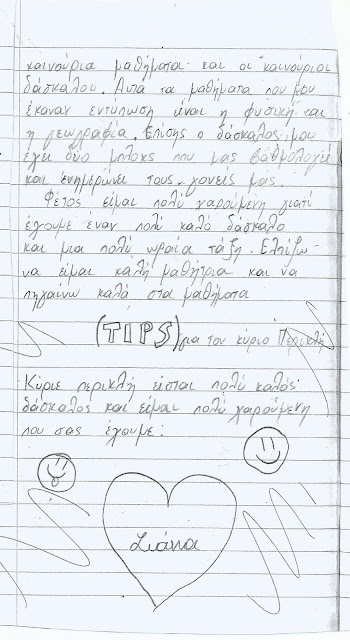 καινούρια μαθήματα και οι καινούριοι
δάσκαλοι. Αυτά τα μαθήματα που μου
έκαναν εντύπωση είναι η φυσική και
η γεωγραφία. Επίσης ο δάσκαλος μου
έχει δύο μπλοκς που μας βαθμολογεί
και ενημερώνει τους γονείς μας.
Φέτος είμαι πολύ χαρούμενη γιατί
έχουμε έναν πολύ καλό δάσκαλο
και μια πολύ ωραία τάξη. Ελπίζω
να είμαι καλή μαθήτρια και να
πηγαίνω καλά στα μαθήματα
(TIPS) για τον κύριο Περικλή
Κύριε περικλή είσαι πολύ καλός
δάσκαλος και είμαι πολύ χαρούμενη
που σας έχουμε.
Λιάνα